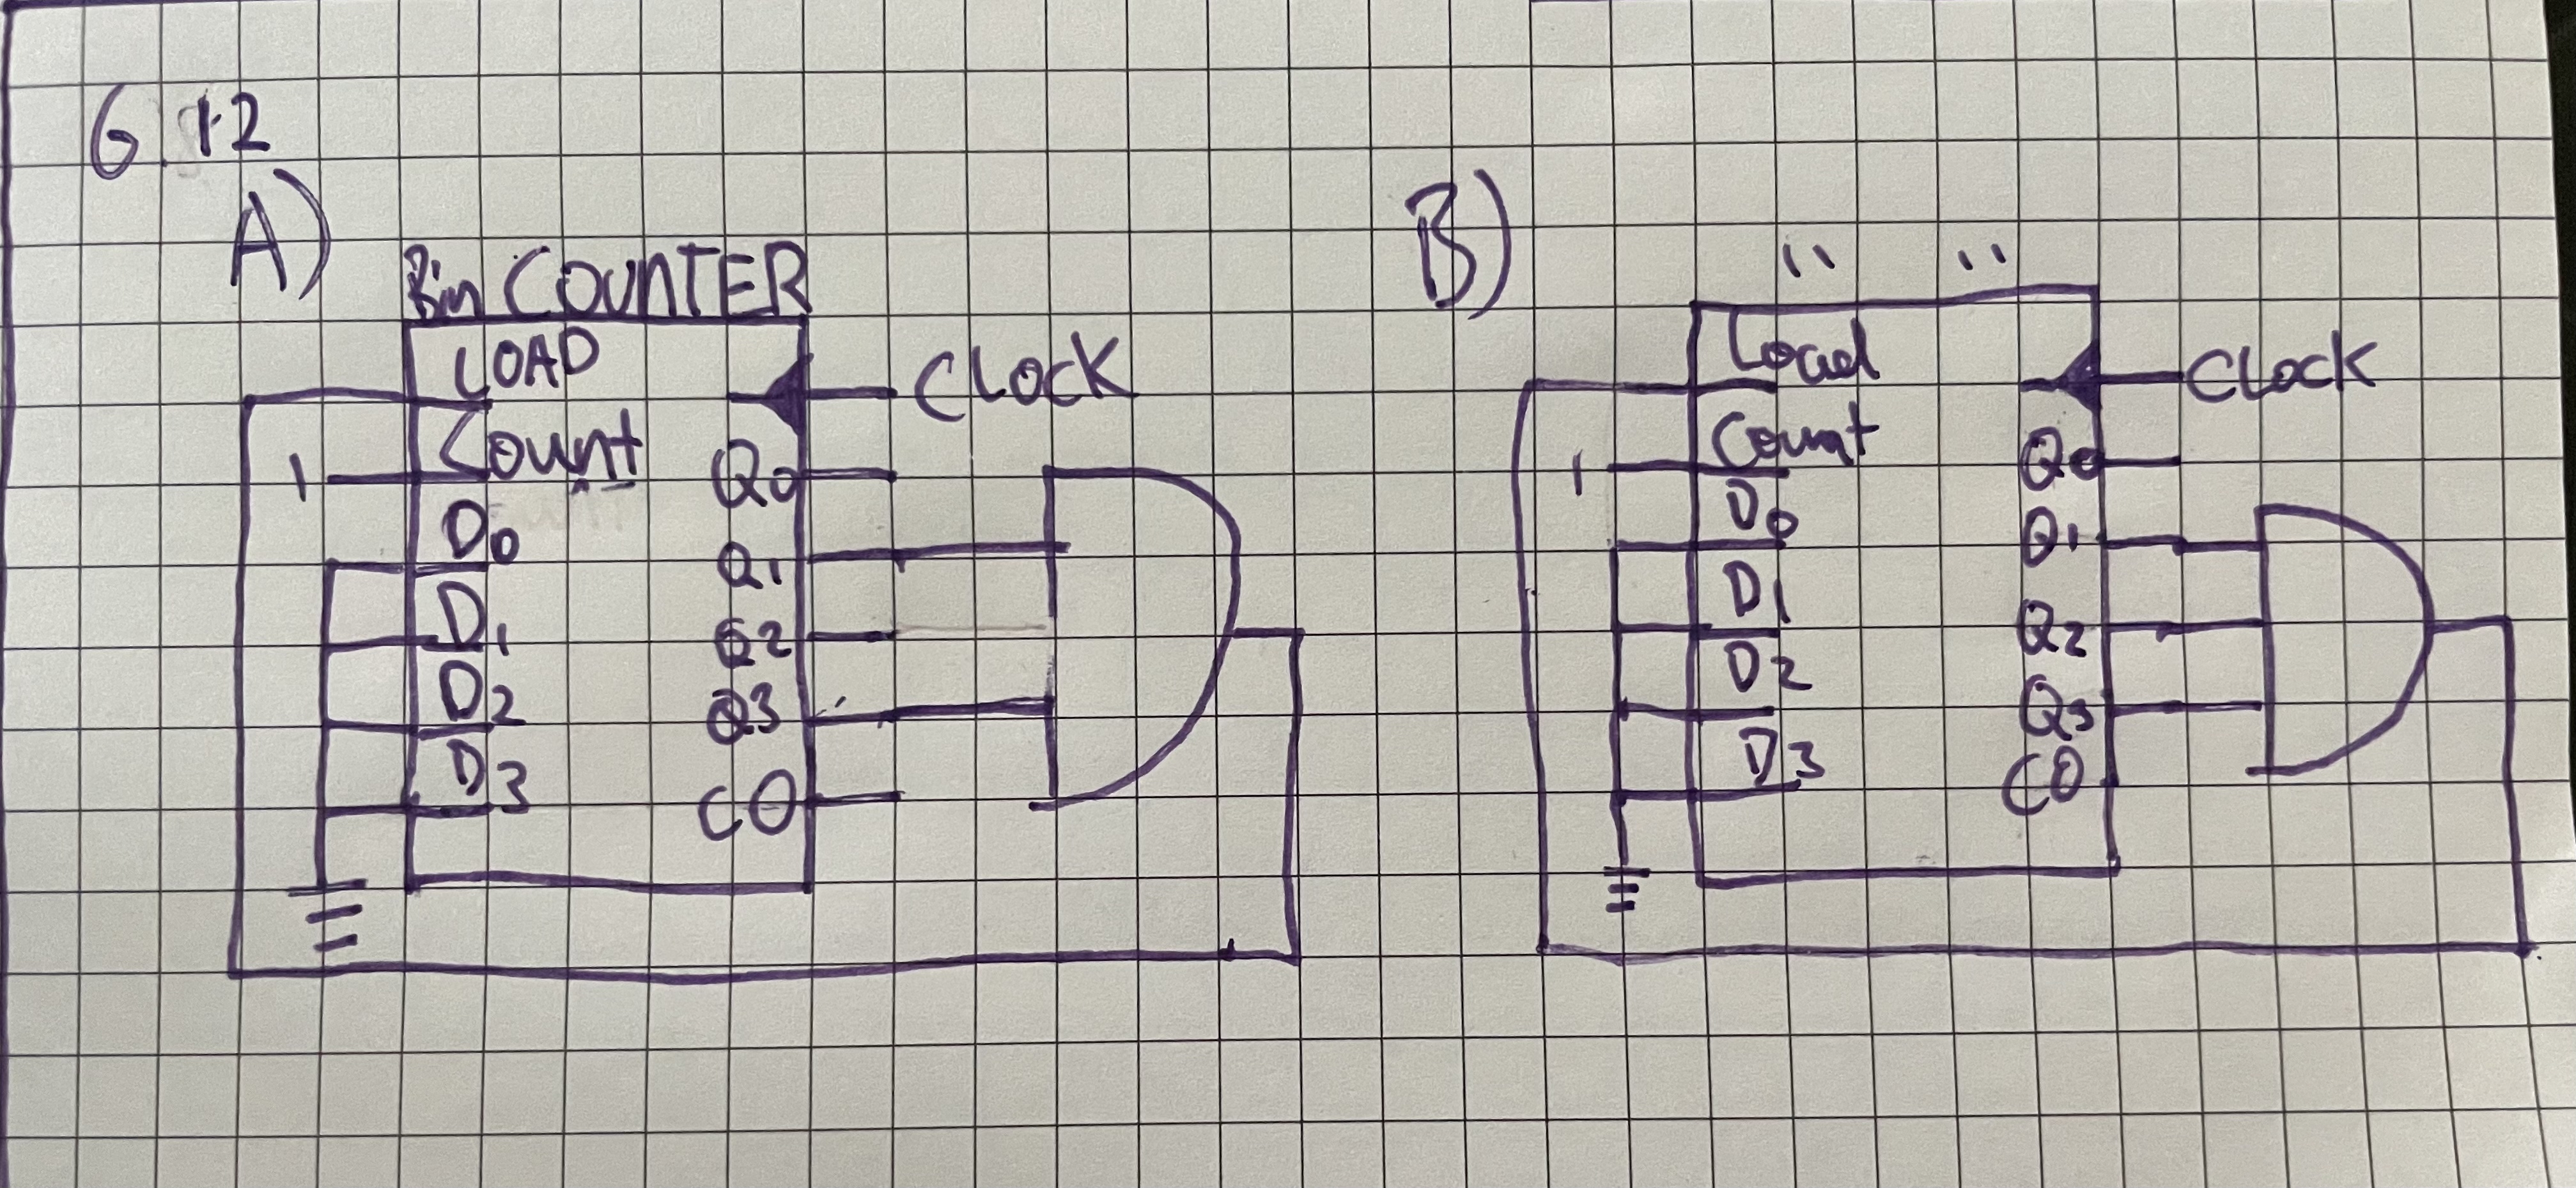 6.12
A)
Bin COUNTER
LOAD
CLOCK
Count
Q0
D0
Q1
D1
Q2
D2
Q3
D3
CO
1
B)
" "
Load
CLOCK
Count
Q0
1
D0
Q1
D1
Q2
D2
Q3
D3
CO